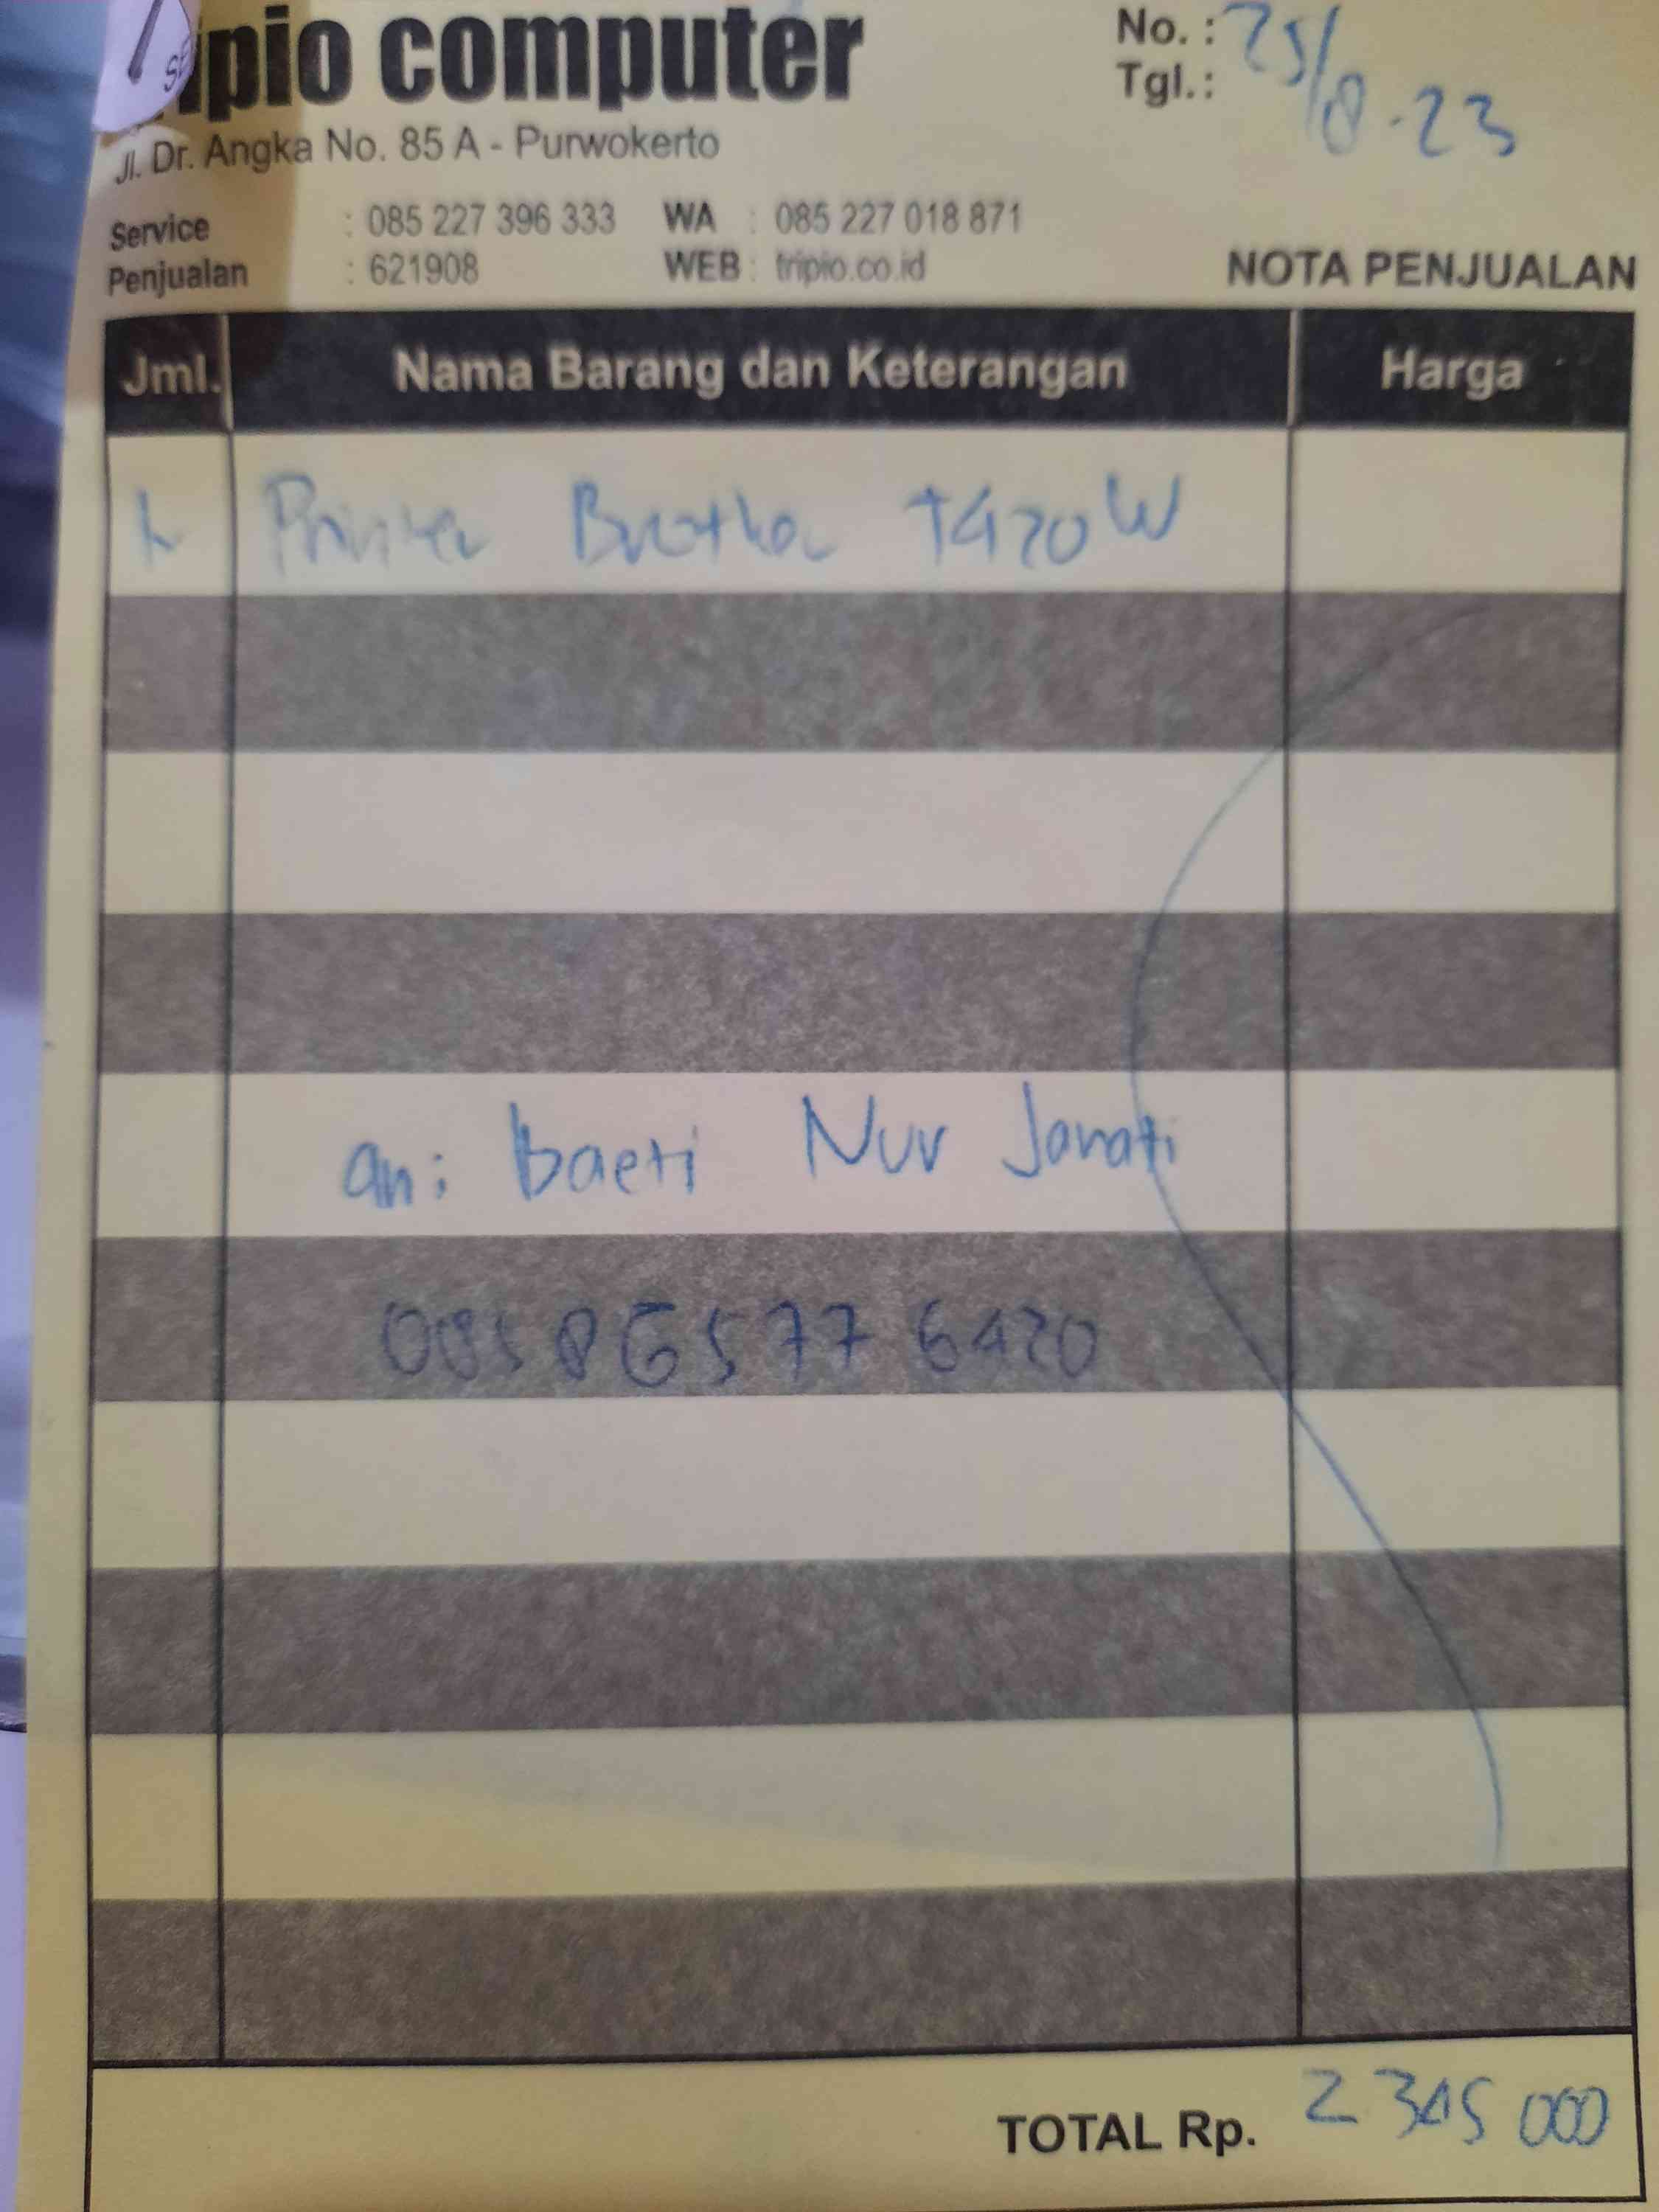 ripio computer
Jl. Dr. Angka No. 85 A - Purwokerto
No. :
Tgl. : 25/8-23
Service : 085 227 396 333 WA : 085 227 018 871
Penjualan : 621908 WEB : tripio.co.id
NOTA PENJUALAN
Jml. Nama Barang dan Keterangan Harga
1 Printer Brother T420W
an: baeti Nur Janati
0858 6577 6420
TOTAL Rp. 2 345 000